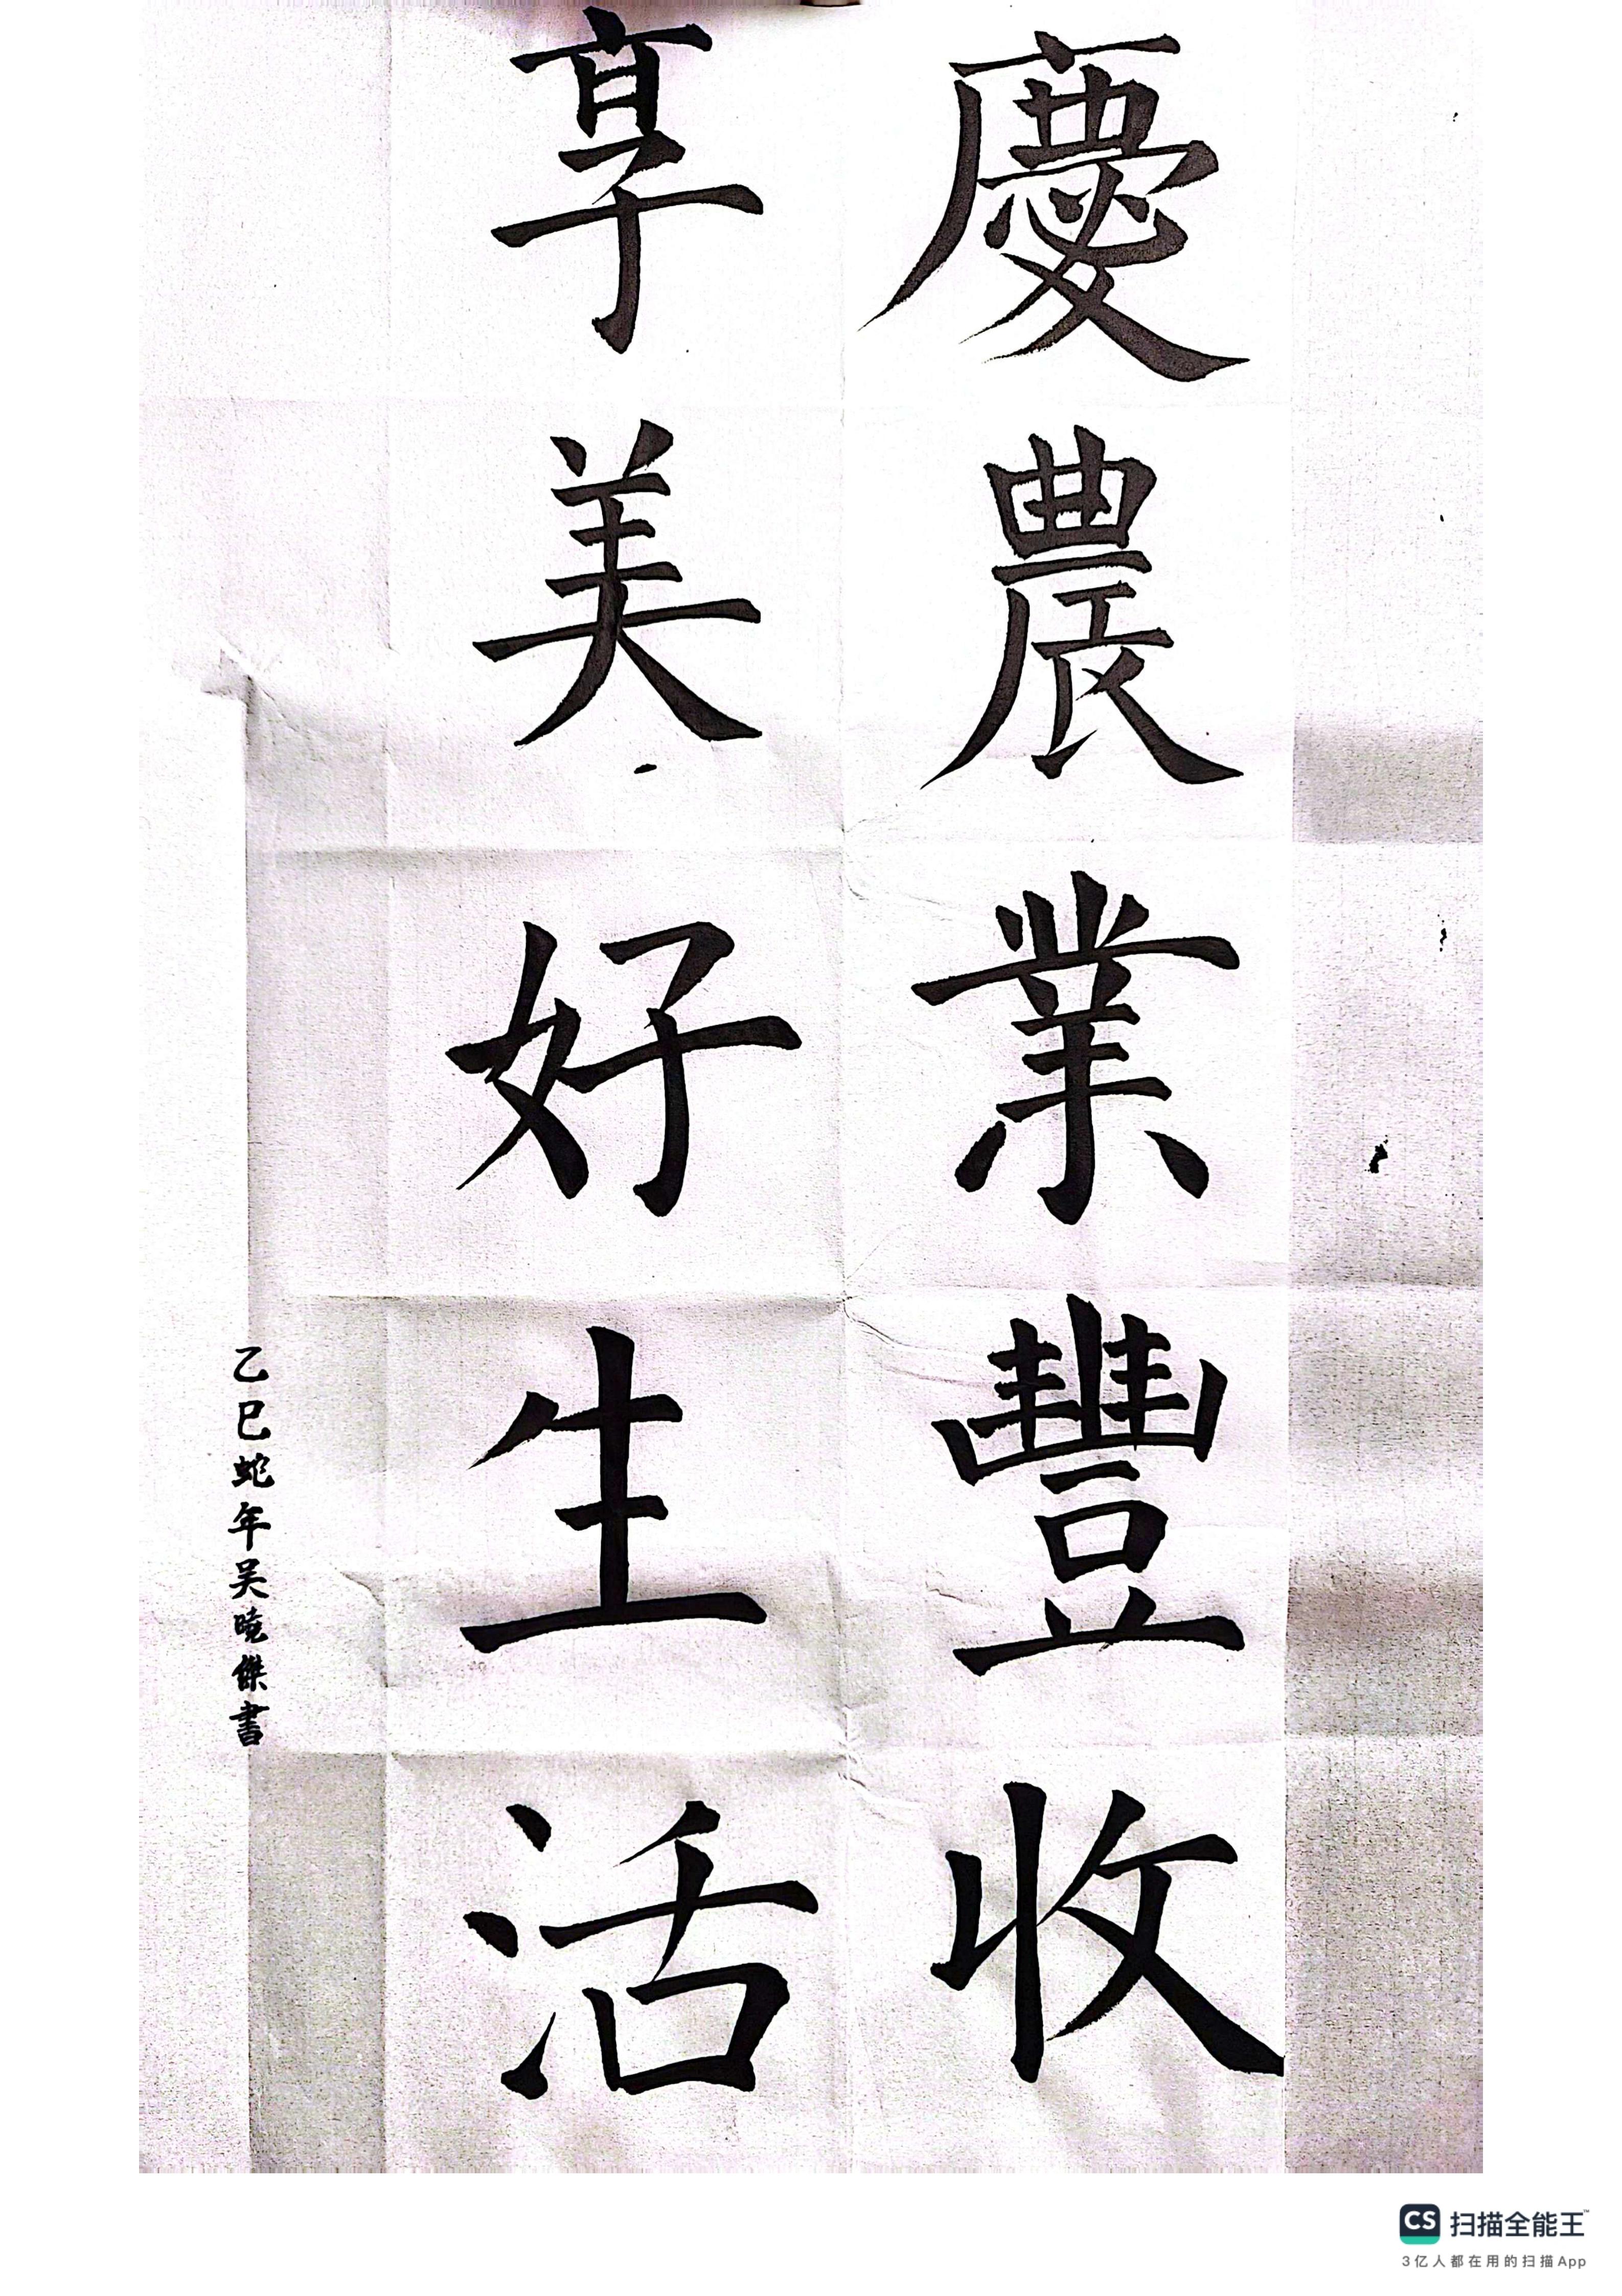 慶農業豐收
享美好生活
乙巳蛇年吴曉傑書
CS 扫描全能王™
3亿人都在用的扫描App